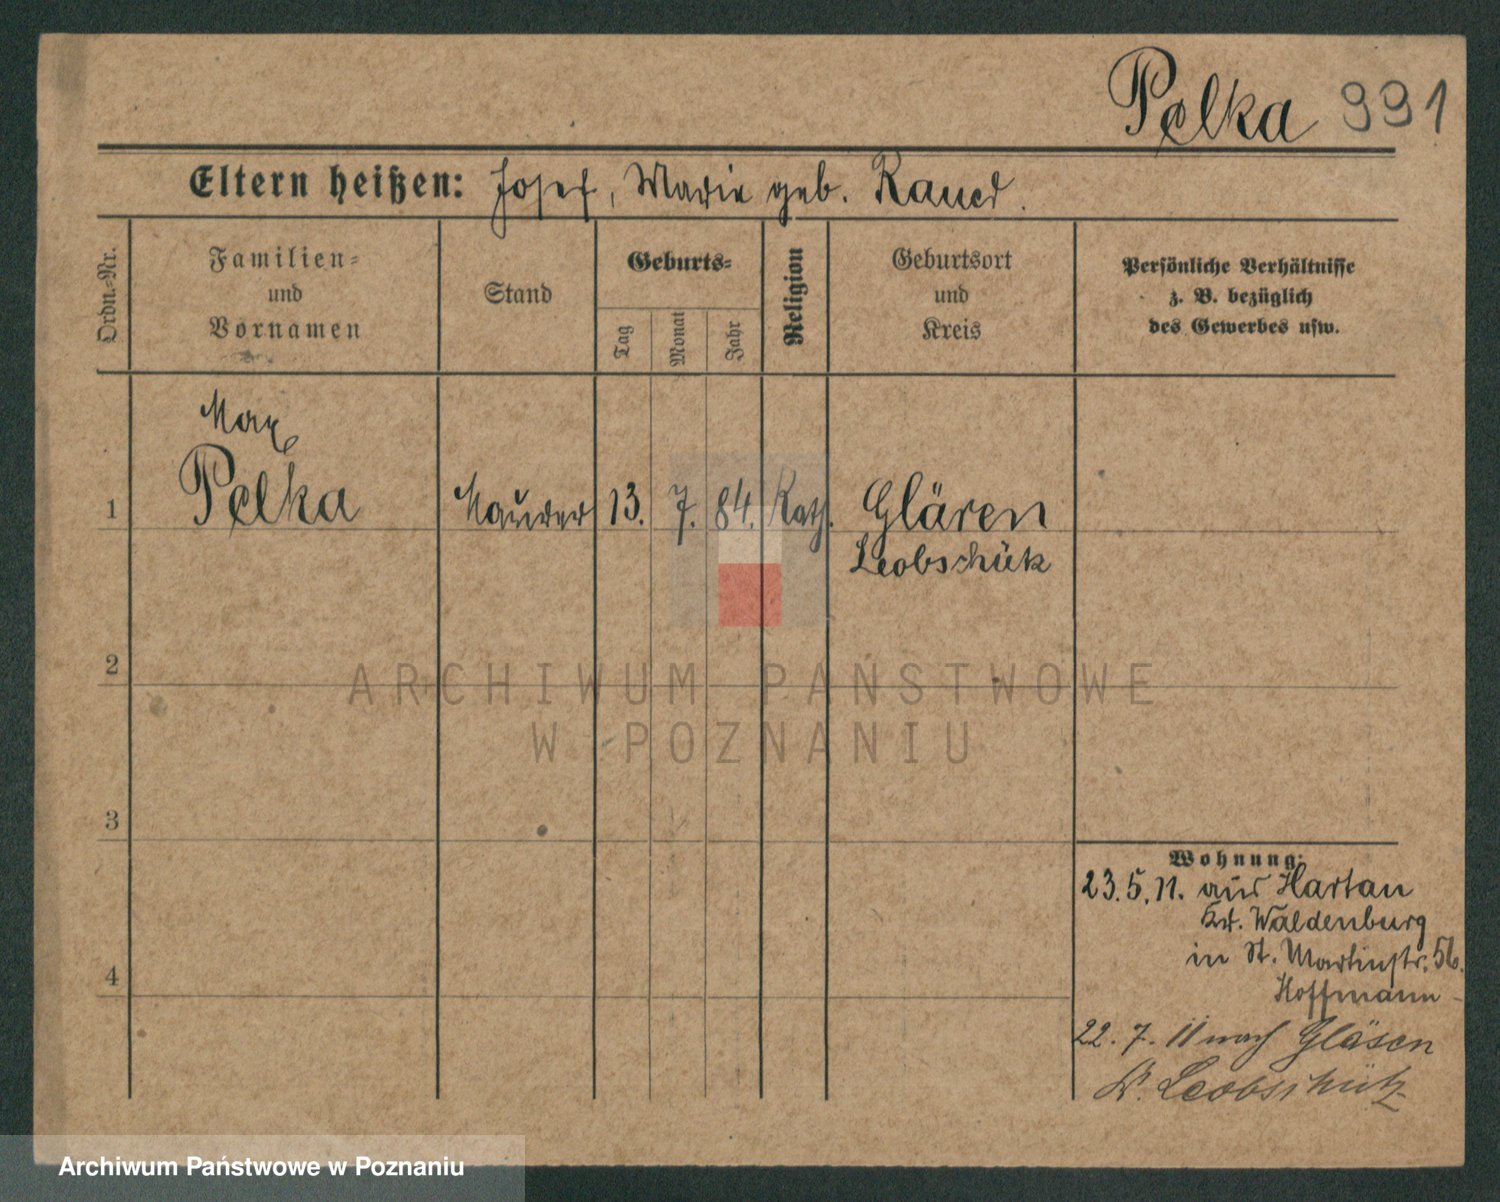 Pelka 991
Eltern heißen: Josef, Marie geb.
Ordn.-Nr.
Familien-
und
Vornamen
Stand
Geburts-
Tag
Monat
Jahr
Religion
Geburtsort
und
Kreis
Persönliche Verhältnisse
z. B. bezüglich
des Gewerbes usw.
Max
1 Pelka Maurer 13. 7. 84. Kath. Glären
Leobschütz
2
3
4
Wohnung:
23.5.11. aus Hartau
Kr. Waldenburg
in St. Martinstr. 56.
Hoffmann
22. 7. 11 nach Gläsen
Kr. Leobschütz
ARCHIWUM PAŃSTWOWE
W POZNANIU
Archiwum Państwowe w Poznaniu